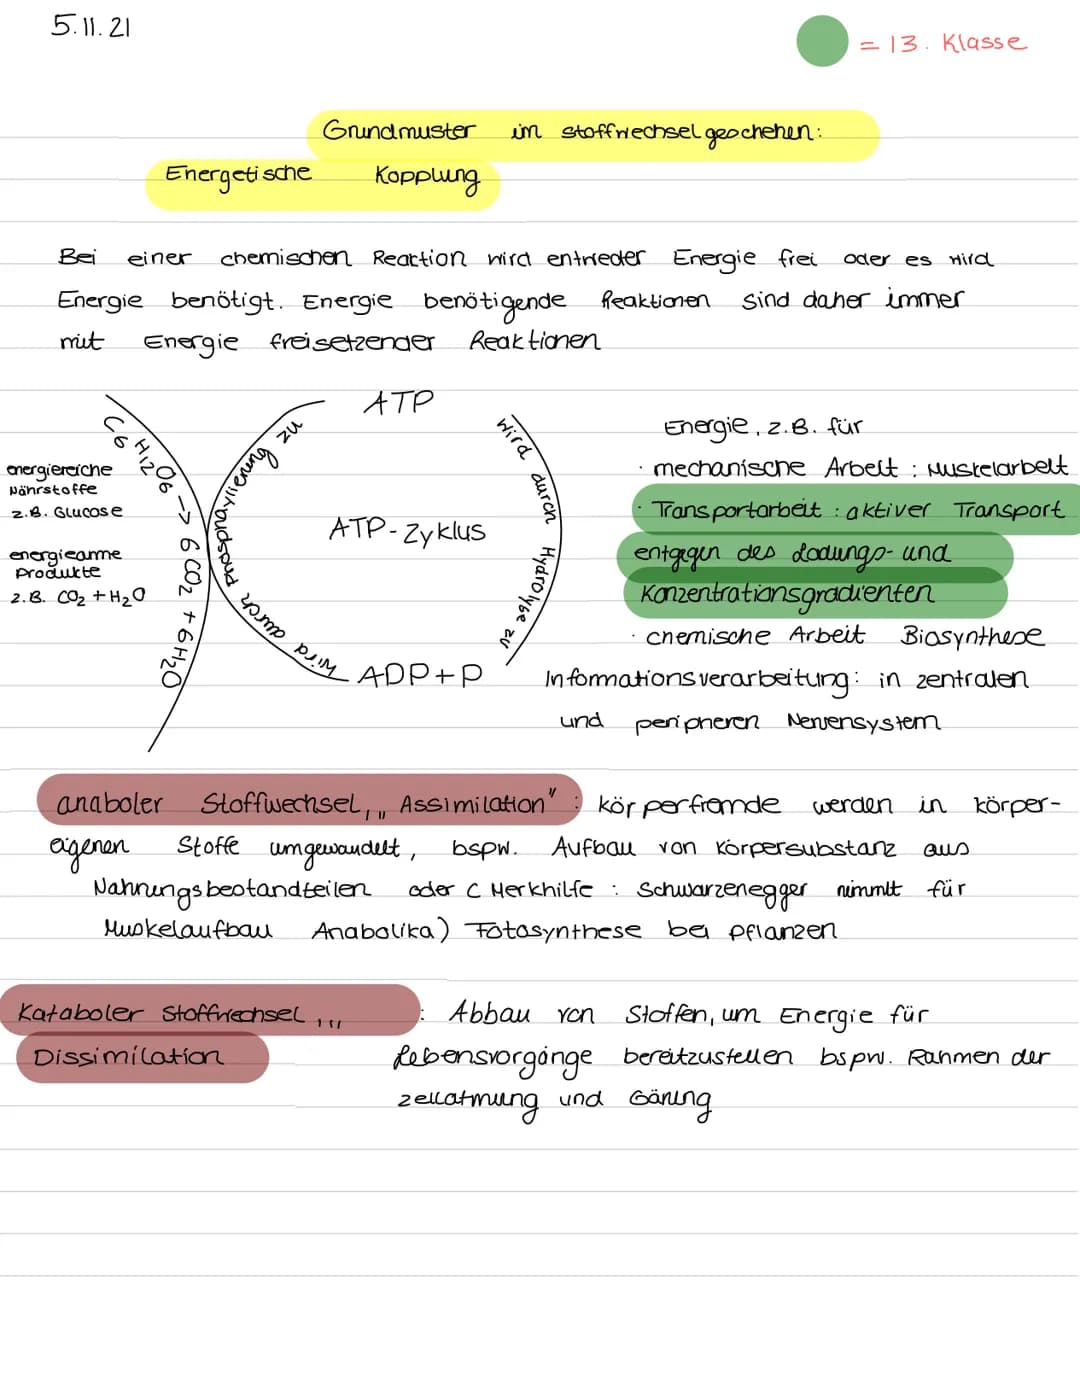 5.11.21
= 13. Klasse
Grundmuster im Stoffwechselgeschehen:
Energetische Kopplung
Bei einer chemischen Reaction wird entweder Energie frei oder es wird
Energie benötigt. Energie benötigende Reaktionen sind daher immer
mit Energie freisetzender Reaktionen
ATP
wird durch Hydrolyse zu
ADP+P
wird durch Phosphorylierung zu
ATP-Zyklus
C6H12O6 -> 6CO2 + 6H2O
energiereiche
Nährstoffe
z.B. Glucose
energiearme
Produkte
z.B. CO2 + H2O
Energie, z.B. für
· mechanische Arbeit : Muskelarbeit
· Transportarbeit : aktiver Transport
entgegen des Ladungs- und
Konzentrationsgradienten
· chemische Arbeit Biosynthese
Informationsverarbeitung: in zentralen
und peripheren Nervensystem
anaboler Stoffwechsel, „Assimilation" : körperfremde werden in körper-
eigenen Stoffe umgewandelt, bspw. Aufbau von Körpersubstanz aus
Nahrungsbestandteilen oder ( Merkhilfe : Schwarzenegger nimmt für
Muskelaufbau Anabolika) Fotosynthese bei Pflanzen
Kataboler Stoffwechsel, „ : Abbau von Stoffen, um Energie für
Dissimilation Lebensvorgänge bereitzustellen bspw. Rahmen der
Zellatmung und Gärung